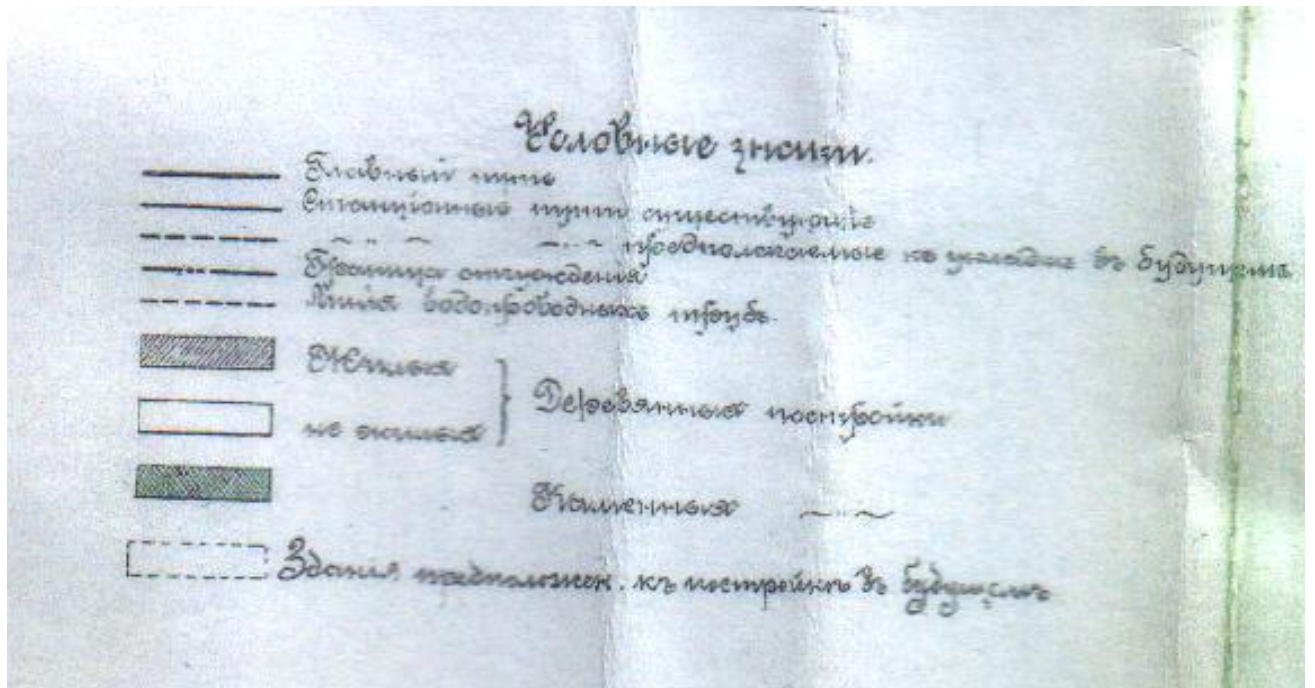 Условные знаки.
Главный путь
Станцiонные пути существующiе
— " — — " — предполагаемые къ укладке въ будущемъ
Граница отчужденiя
Линiя водопроводныхъ трубъ.
Жилыя
не жилыя
Деревянныя постройки
Каменныя — " —
Зданiя предположен. къ постройкѣ въ будущемъ